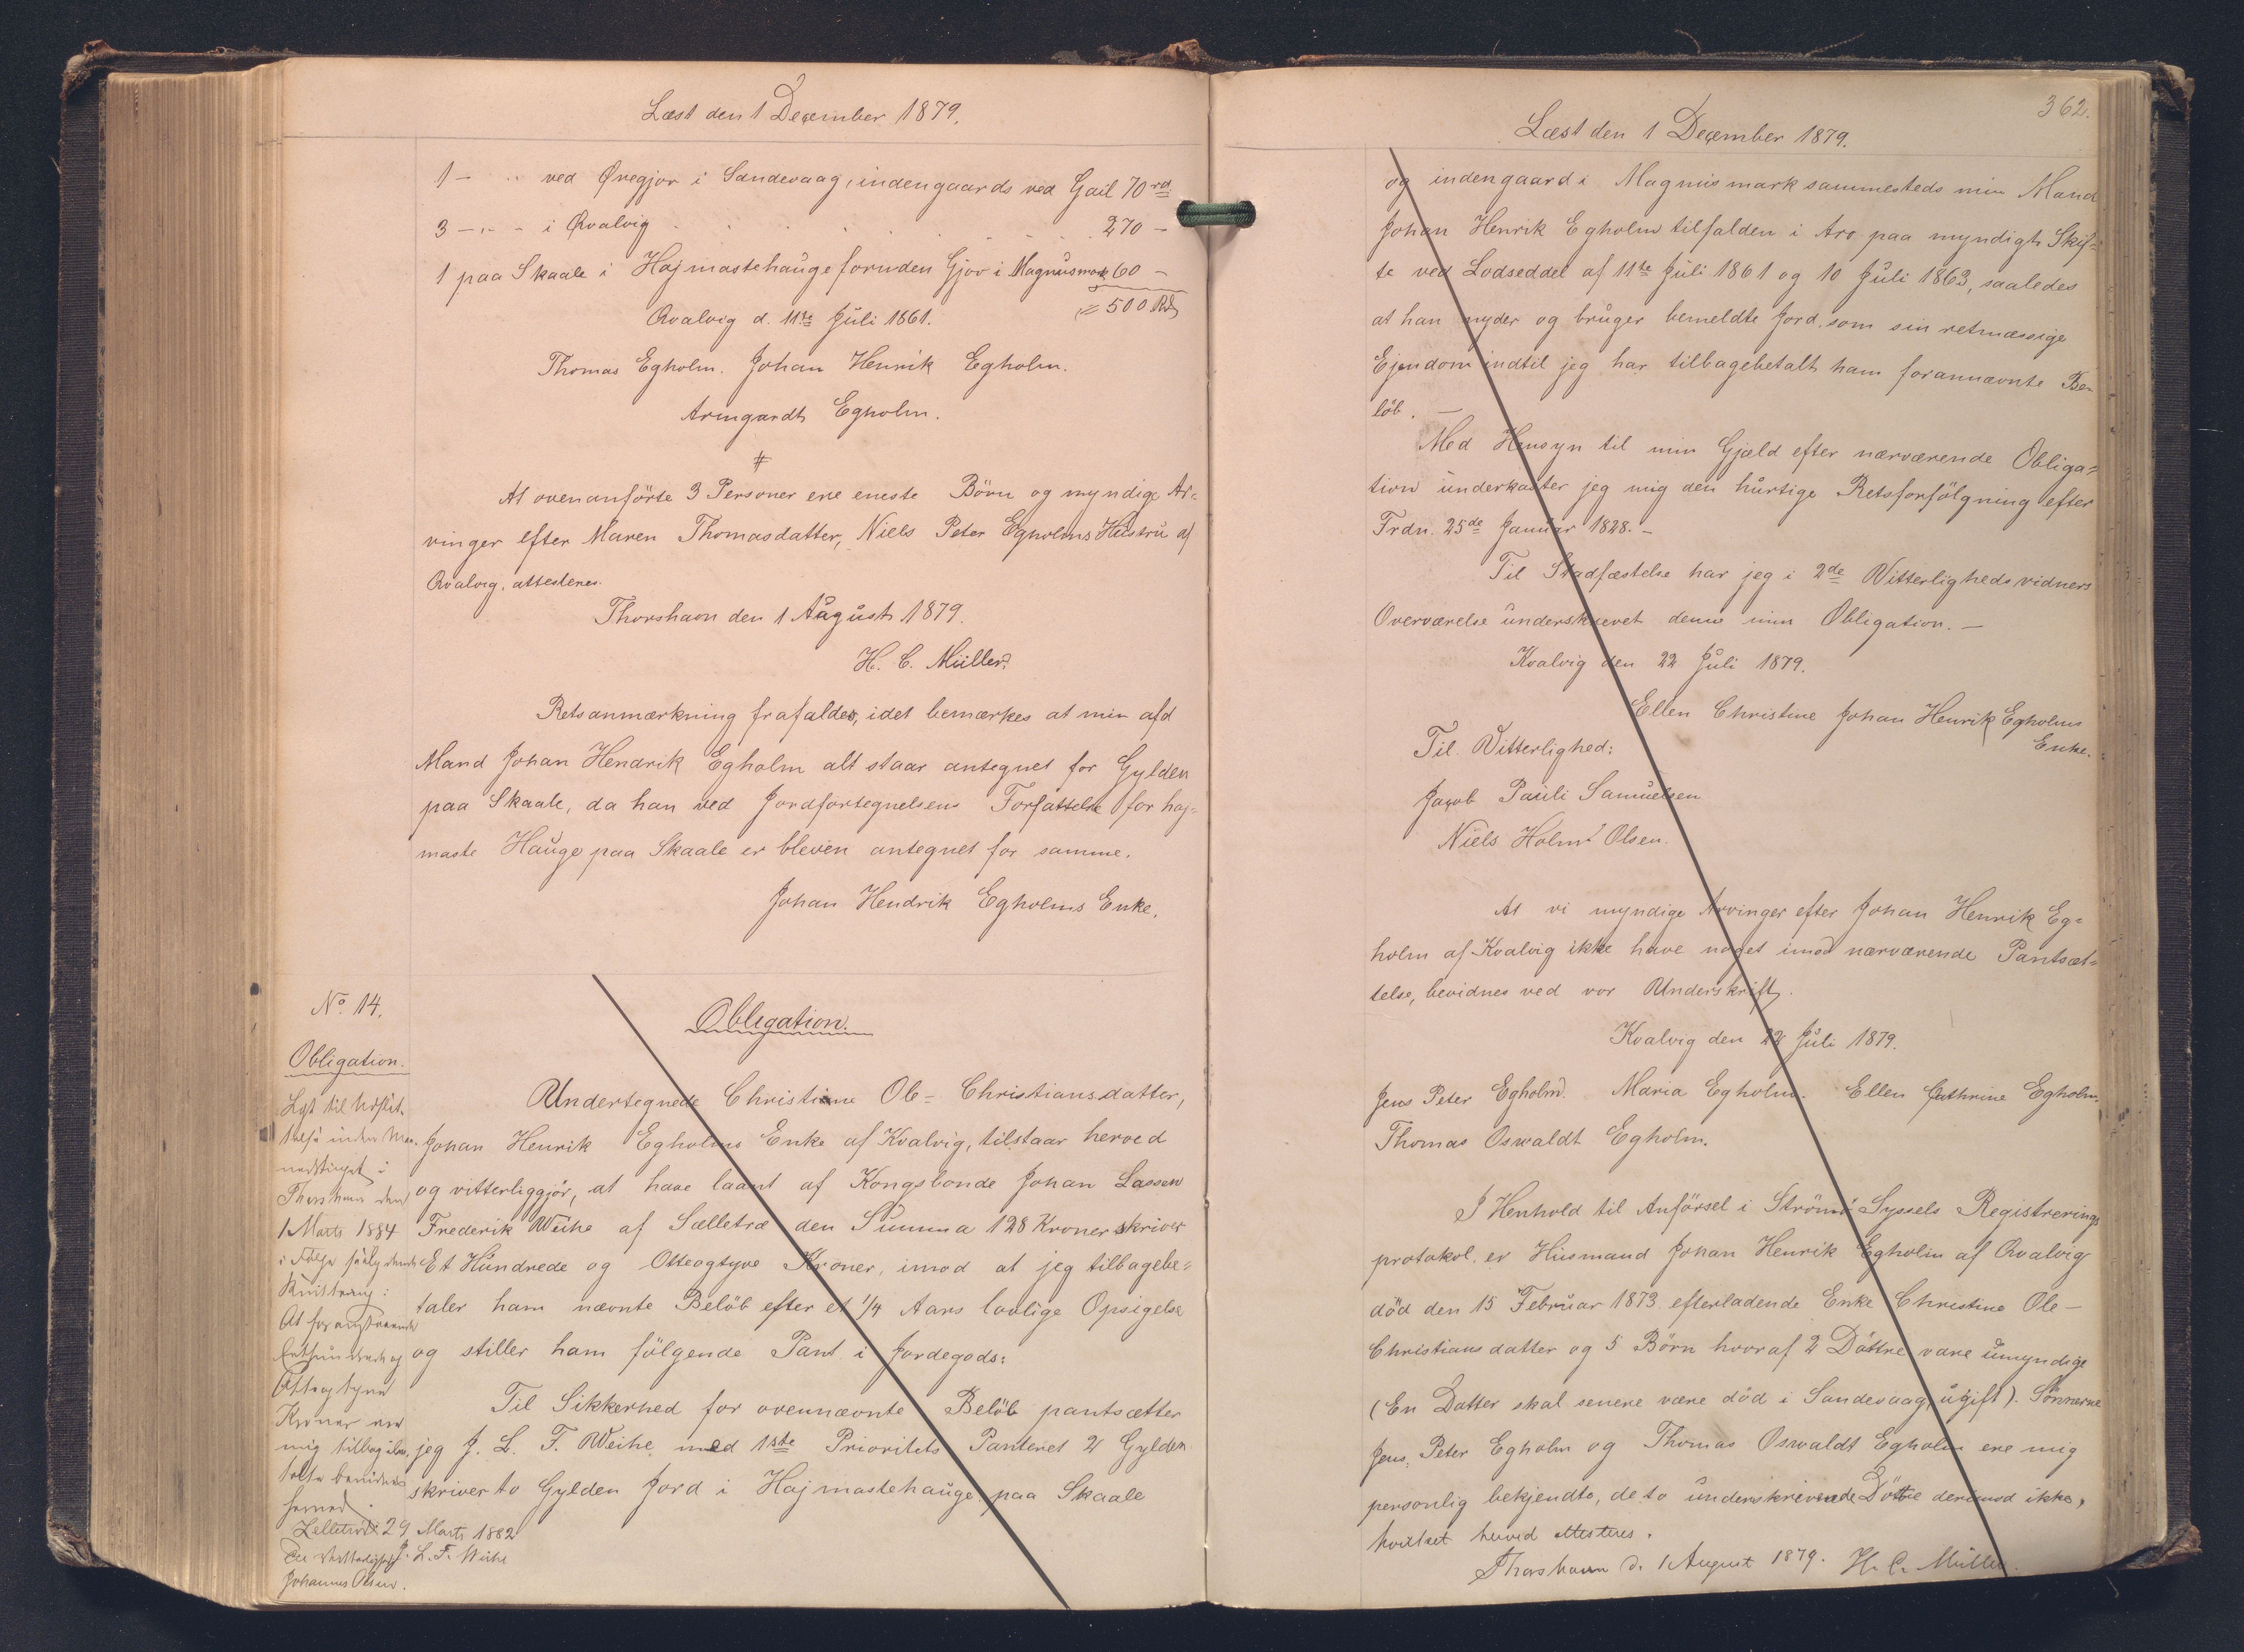 Læst den 1 December 1879.
1 – .. ved Øregjov i Sandevaag, indengaards ved Gail 70 rd
3 – .. – i Qvalvig . . . . . . 270 –
1 paa Skaale i Hajmastehauge foruden Gjov i Magnusmark 60 –
= 500 Rd
Qvalvig d. 11te Juli 1861.
Thomas Egholm. Johan Henrik Egholm.
Armgardt Egholm.
#
At ovenanförte 3 Personer ere eneste Börn og myndige Ar=
vinger efter Maren Thomasdatter, Niels Peter Egholms Hustru af
Qvalvig, attesteres.
Thorshavn den 1 August 1879.
H. C. Müller.
Retsanmærkning frafaldes, idet bemærkes at min afd
Mand Johan Hendrik Egholm alt staar antegnet for Gylden
paa Skaale, da han ved Jordfortegnelsens Forfattelse for haj=
maste Hauge paa Skaale er bleven antegnet for samme.
Johan Hendrik Egholms Enke.
No 14.
Obligation.
Lyst til Udslet-
telse inden Maa-
nedstinget i
Thorshavn den
1 Marts 1884
i Følge saalydende
Kvittering:
At foranstaaende
Ethundrede og
Otteogtyve
Kroner ere
mig tilbagebe-
talte bevidnes
herved.
Zelletræ 29 Marts 1882
J. L. F. Weihe
Til Vitterlighed
Johannes Olsen.
Obligation.
Undertegnede Christiane Ole= Christiansdatter,
Johan Henrik Egholms Enke af Kvalvig, tilstaar herved
og vitterliggjör, at have laant af Kongsbonde Johan Lassen
Frederik Weihe af Sælletræ den Summa 128 Kroner skriver
Et Hundrede og Otteogtyve Kroner, imod at jeg tilbagebe=
taler ham nævnte Belöb efter et 1/4 Aars lovlige Opsigelse
og stiller ham fölgende Pant i Jordegods:
Til Sikkerhed for ovennævnte Belöb pantsætter
jeg J. L. F. Weihe med 1ste Prioritets Panteret 2 Gylden
skriver to Gylden Jord i Hajmastehauge paa Skaale
362.
Læst den 1 December 1879.
og indengaard i Magnusmark sammesteds min Mand
Johan Henrik Egholm tilfalden i Arv paa myndigt Skif=
te ved Lodseddel af 11te Juli 1861 og 10 Juli 1863, saaledes
at han nyder og bruger bemeldte Jord som sin retmæssige
Ejendom indtil jeg har tilbagebetalt ham forannævnte Be=
löb. –
Med Hensyn til min Gjæld efter nærværende Obliga=
tion underkaster jeg mig den hurtige Retsforfölgning efter
Frdn. 25de Januar 1828. –
Til Stadfæstelse har jeg i 2de Vitterlighedsvidners
Overværelse underskrevet denne min Obligation. –
Kvalvig den 22 Juli 1879.
Ellen Christine Johan Henrik Egholms
Enke.
Til Vitterlighed:
Jacob Pauli Samuelsen
Niels Holm? Olsen.
At vi myndige Arvinger efter Johan Henrik Eg=
holm af Kvalvig ikke have noget imod nærværende Pantsæt=
telse, bevidnes ved vor Underskrift.
Kvalvig den 22 Juli 1879.
Jens Peter Egholm. Maria Egholm. Ellen Cathrine Egholm.
Thomas Oswaldt Egholm.
I Henhold til Anförsel i Strömö Syssels Registrerings
protokol, er Husmand Johan Henrik Egholm af Qvalvig
död den 15 Februar 1873 efterladende Enke Christine Ole –
Christians datter og 5 Börn hvoraf 2 Döttre vare umyndige
(En Datter skal senere være död i Sandevaag, ugift). Sönnerne
Jens Peter Egholm og Thomas Oswaldt Egholm ere mig
personlig bekjendte, de to underskrivende Döttre derimod ikke,
hvilket herved attesteres.
Thorshavn d. 1 August 1879. H. C. Müller.